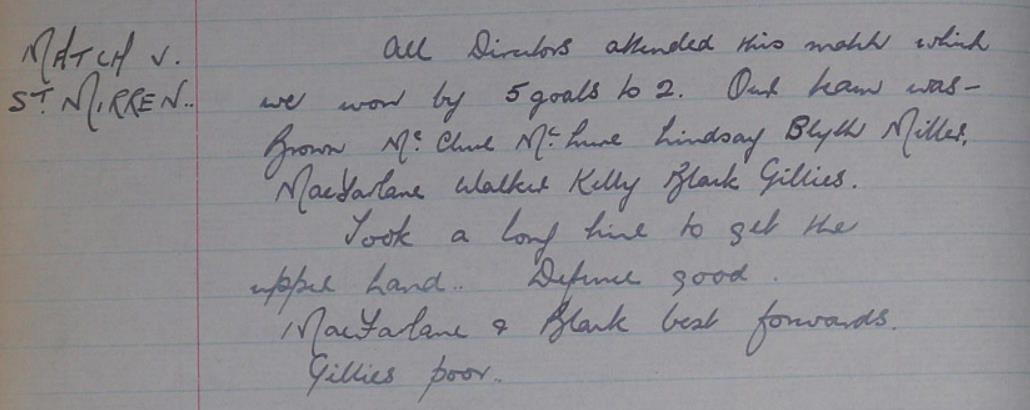 MATCH V.
ST. MIRREN..
All Directors attended this match which
we won by 5 goals to 2. Our team was -
Brown Mc. Clure Mc. Lure Lindsay Blyth Miller,
MacFarlane Walker Kelly Black Gillies.
Took a long time to get the
upper hand.. Defence good.
MacFarlane & Black best forwards.
Gillies poor..